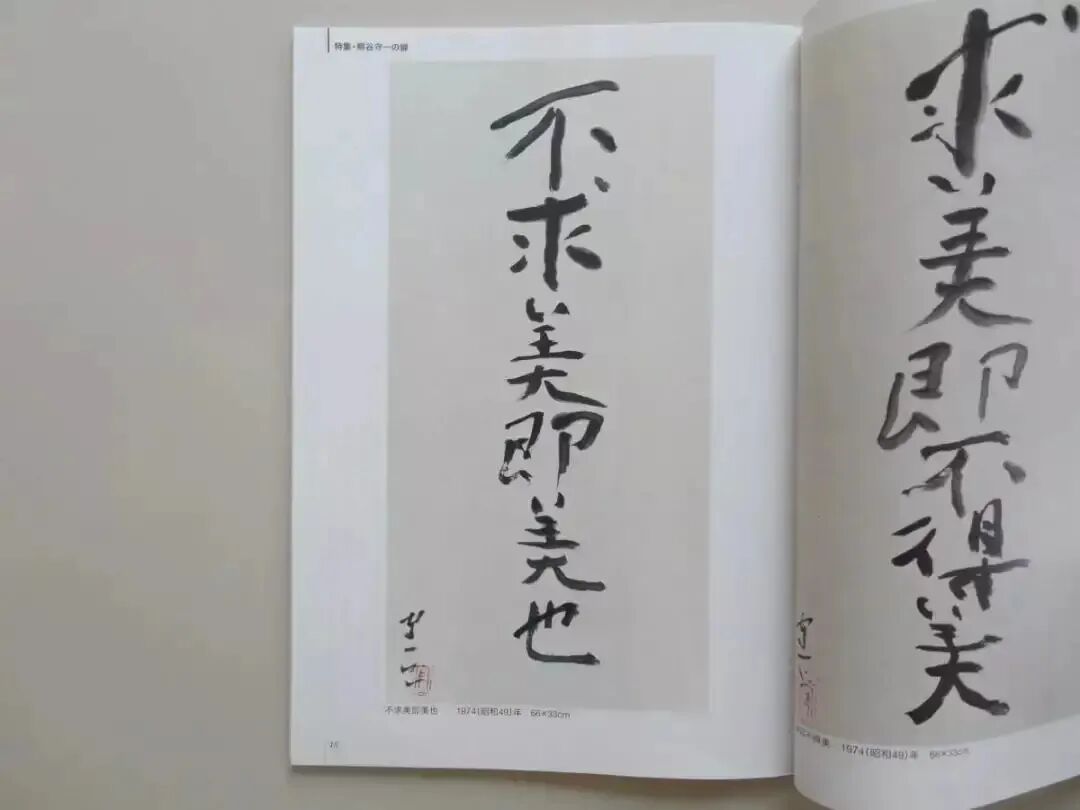 特集・熊谷守一の
不求美即美也
守一
不求美即美也 1974(昭和49)年 66×33cm
求美即不得美
守一
得美 1974(昭和49)年 66×33cm